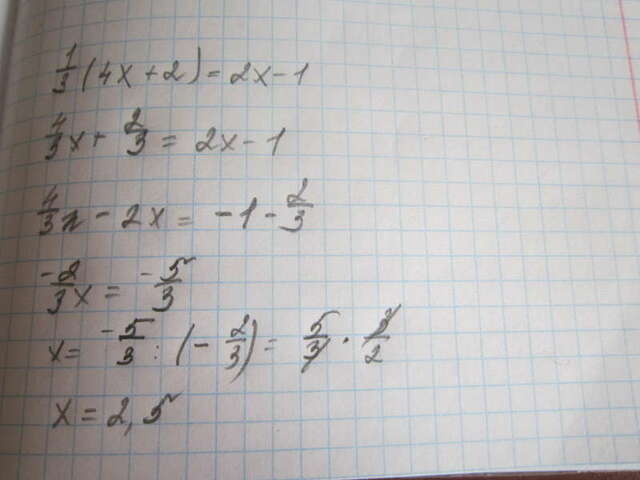 1/3 (4x + 2) = 2x - 1
4/3 x + 2/3 = 2x - 1
4/3 x - 2x = -1 - 2/3
-2/3 x = -5/3
x = -5/3 : (-2/3) = 5/3 · 3/2
x = 2,5